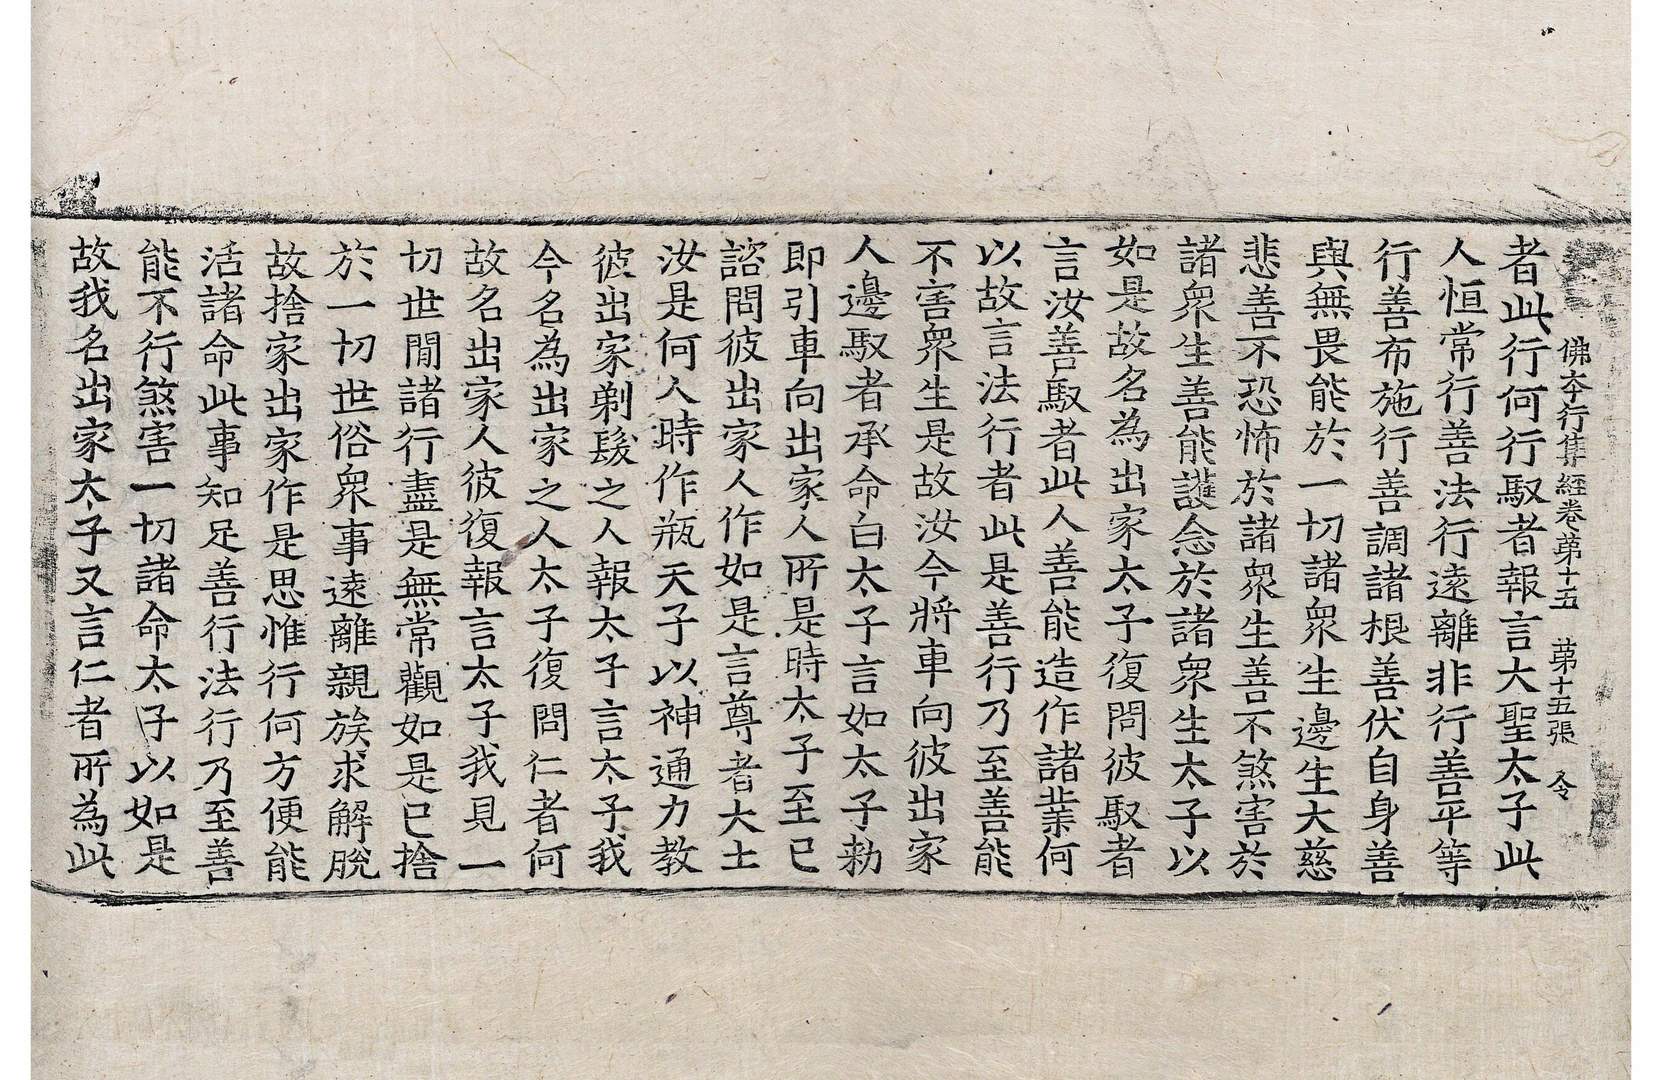 佛夲行集經卷苐十五　苐十五張　令
者此行何行馭者報言大聖太子此
人恒常行善法行遠離非行善平等
行善布施行善調諸根善伏自身善
與無畏能於一切諸衆生邊生大慈
悲善不恐怖於諸衆生善不煞害於
諸衆生善能護念於諸衆生太子以
如是故名為出家太子復問彼馭者
言汝善馭者此人善能造作諸業何
以故言法行者此是善行乃至善能
不害衆生是故汝今將車向彼出家
人邊馭者承命白太子言如太子勑
即引車向出家人所是時太子至已
諮問彼出家人作如是言尊者大士
汝是何人時作瓶天子以神通力教
彼出家剃髮之人報太子言太子我
今名為出家之人太子復問仁者何
故名出家人彼復報言太子我見一
切世間諸行盡是無常觀如是已捨
於一切世俗衆事遠離親族求解脫
故捨家出家作是思惟行何方便能
活諸命此事知足善行法行乃至善
能不行煞害一切諸命太子以如是
故我名出家太子又言仁者所為此